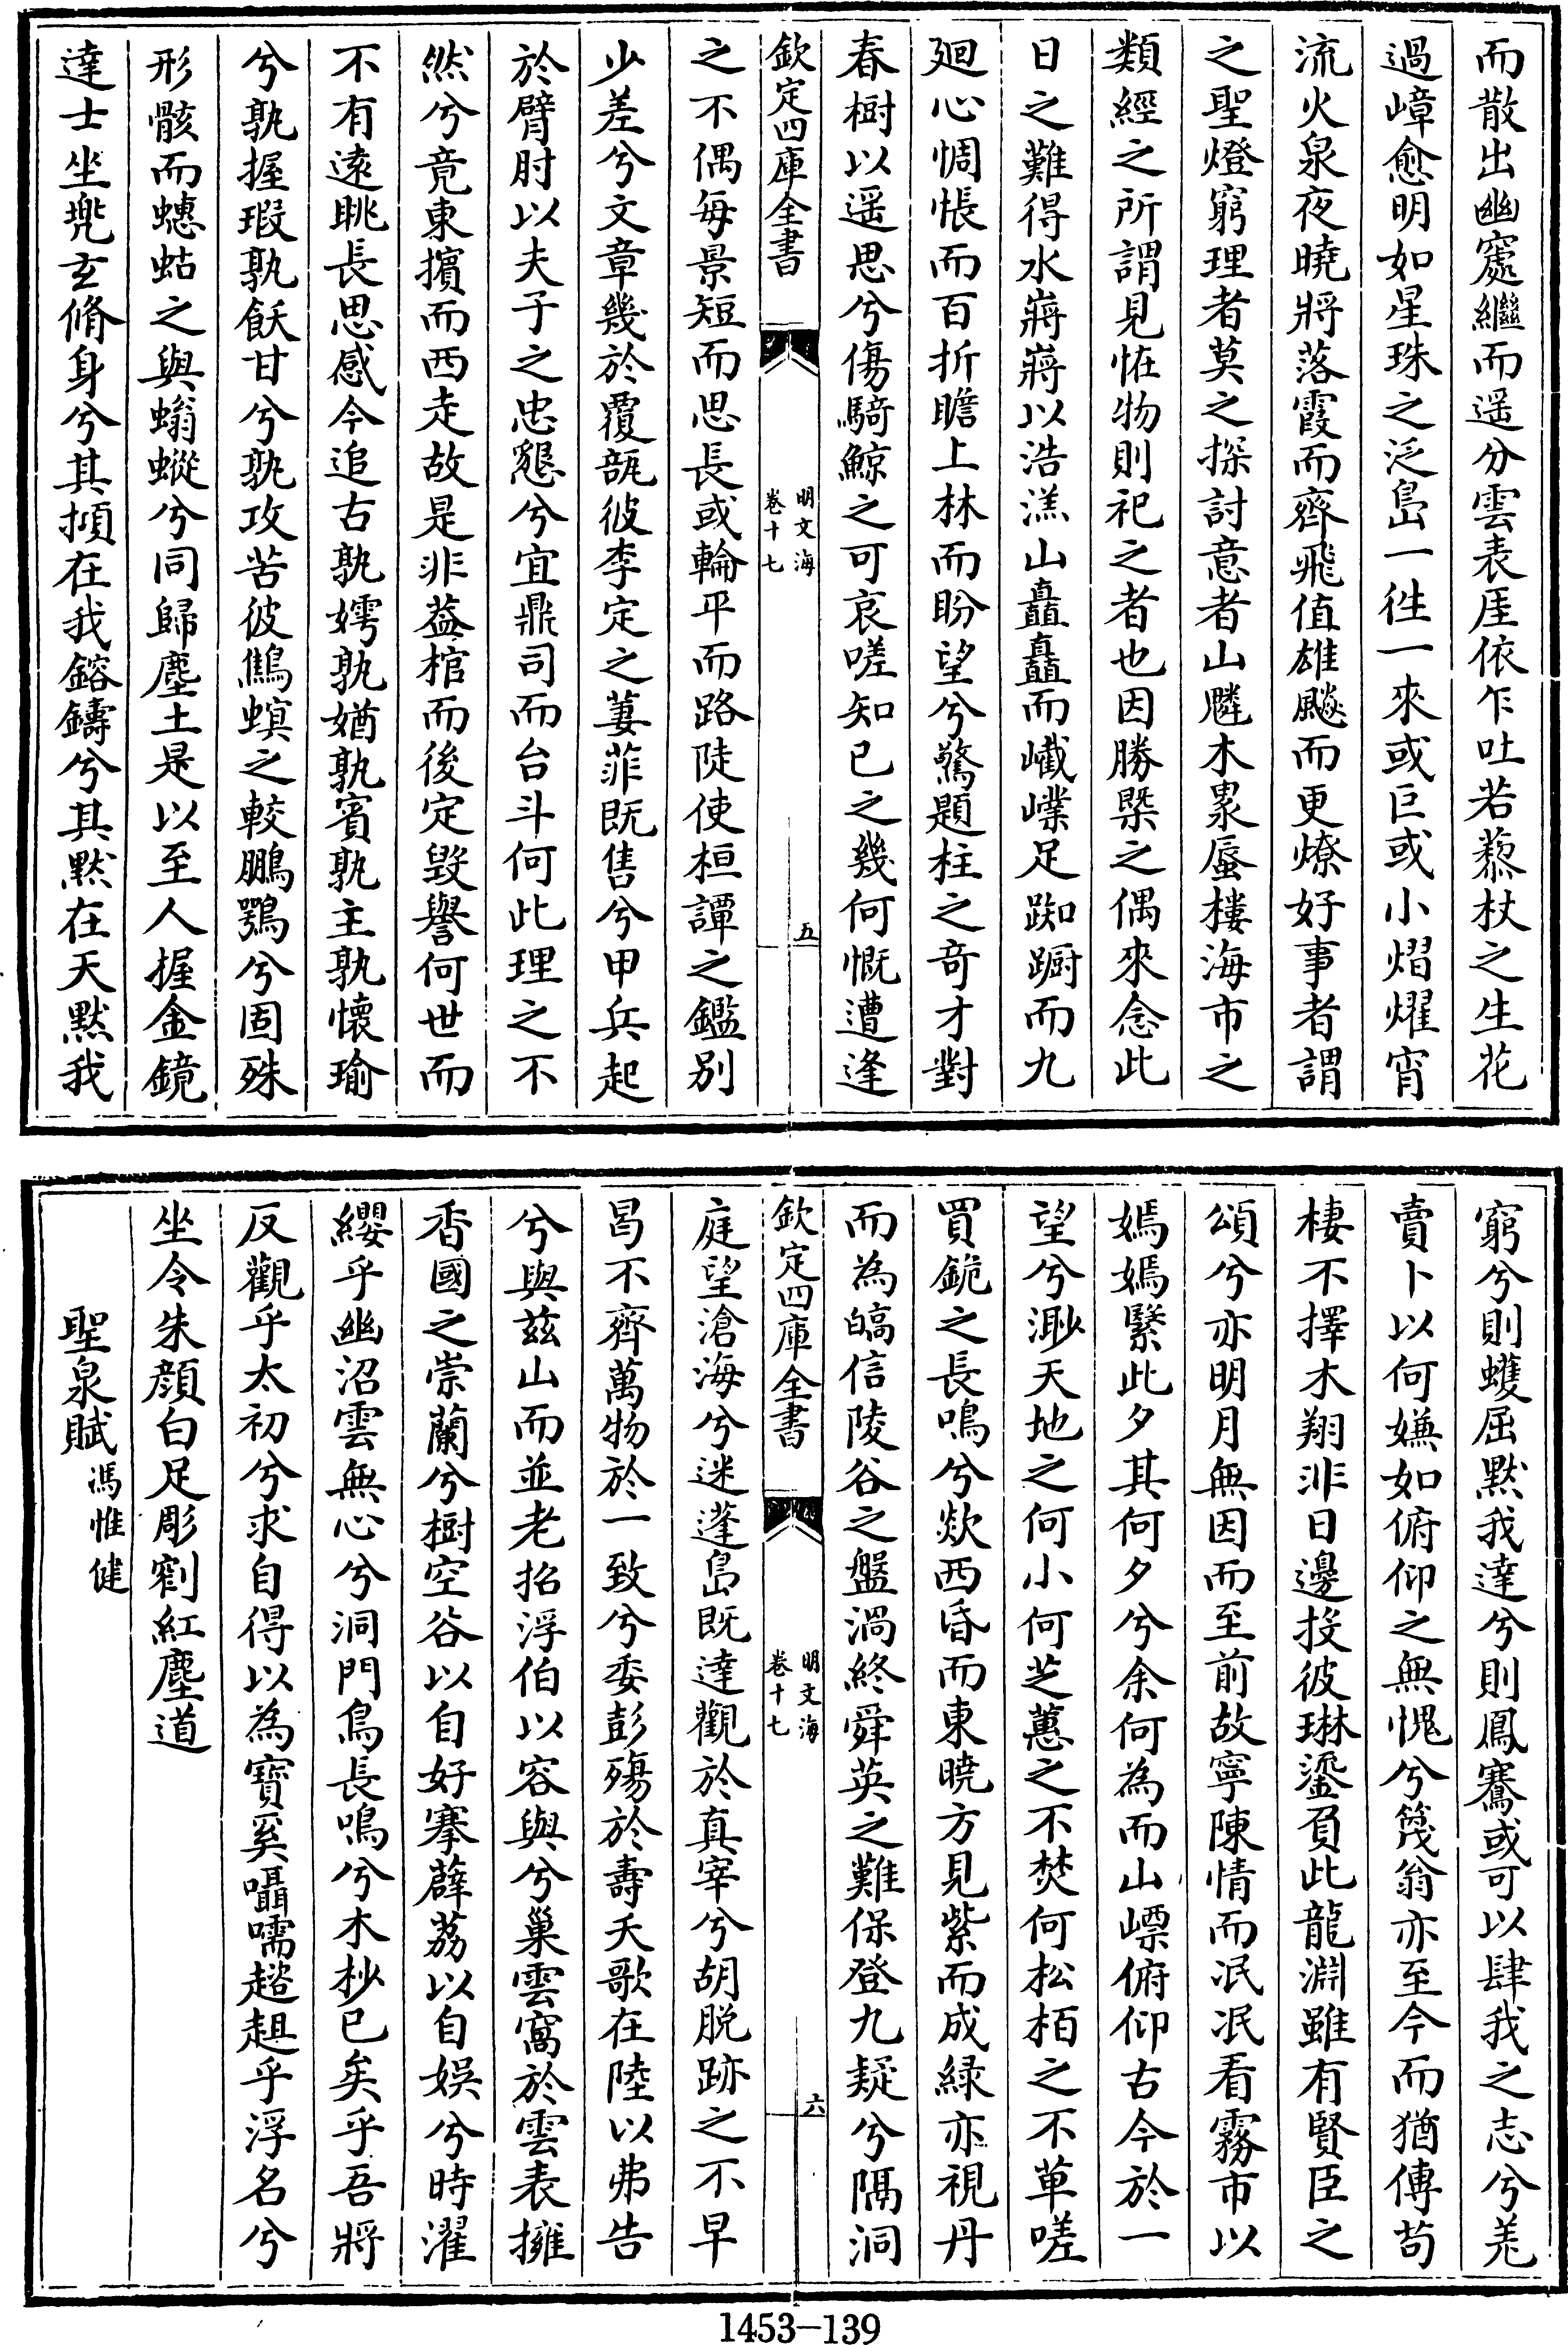 而散出幽窽繼而遥分雲表厓依乍吐若藜杖之生花
過嶂愈明如星珠之泛島一徃一來或巨或小熠燿宵
流火泉夜曉將落霞而齊飛值雄飈而更燎好事者謂
之聖燈窮理者莫之探討意者山燐木㬥蜃樓海市之
類經之所謂見恠物則祀之者也因勝槩之偶來念此
日之難得水蔣蔣以浩溔山矗矗而巀嶫足踟蹰而九
廻心惆悵而百折瞻上林而盼望兮驚題柱之奇才對
春樹以遥思兮傷騎鯨之可哀嗟知已之幾何慨遭逢
欽定四庫全書
明文海
卷十七
五
之不偶每景短而思長或輪平而路陡使桓譚之鑑别
少差兮文章幾於覆瓿彼李定之萋菲既售兮甲兵起
於臂肘以夫子之忠懇兮宜鼎司而台斗何此理之不
然兮竟東擯而西走故是非葢棺而後定毁譽何世而
不有遠眺長思感今追古孰嫮孰媨孰賓孰主孰懷瑜
兮孰握瑕孰飫甘兮孰攻苦彼鷦螟之較鵬鶚兮固殊
形骸而蟪蛄之與螉䗥兮同歸塵土是以至人握金鏡
達士坐兠玄脩身兮其摃在我鎔鑄兮其黙在天黙我
窮兮則蠖屈黙我達兮則鳳騫或可以肆我之志兮羌
賣卜以何嫌如俯仰之無愧兮篾翁亦至今而猶傳苟
棲不擇木翔非日邊投彼琳鎏負此龍淵雖有賢臣之
頌兮亦明月無因而至前故寧陳情而泯泯看霧市以
嫣嫣繄此夕其何夕兮余何為而山嵊俯仰古今於一
望兮渺天地之何小何芝蕙之不焚何松栢之不草嗟
買鉇之長鳴兮歘西昏而東曉方見紫而成緑亦視丹
而為皜信陵谷之盤渦終舜英之難保登九疑兮隅洞
欽定四庫全書
明文海
卷十七
六
庭望滄海兮迷蓬島既達觀於真宰兮胡脱跡之不早
曷不齊萬物於一致兮委彭殤於壽夭歌在陸以弗告
兮與兹山而並老招浮伯以容與兮巢雲窩於雲表擁
香國之崇蘭兮樹空谷以自好搴薜荔以自娱兮時濯
纓乎幽沼雲無心兮洞門鳥長鳴兮木杪已矣乎吾將
反觀乎太初兮求自得以為寶奚囁嚅趦趄乎浮名兮
坐令朱顔白足彫劀紅塵道
聖泉賦 馮惟健
1453—139